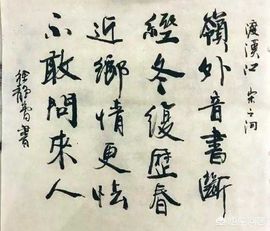 渡漢江 宋之问
嶺外音書斷
經冬復歷春
近鄉情更怯
不敢問來人